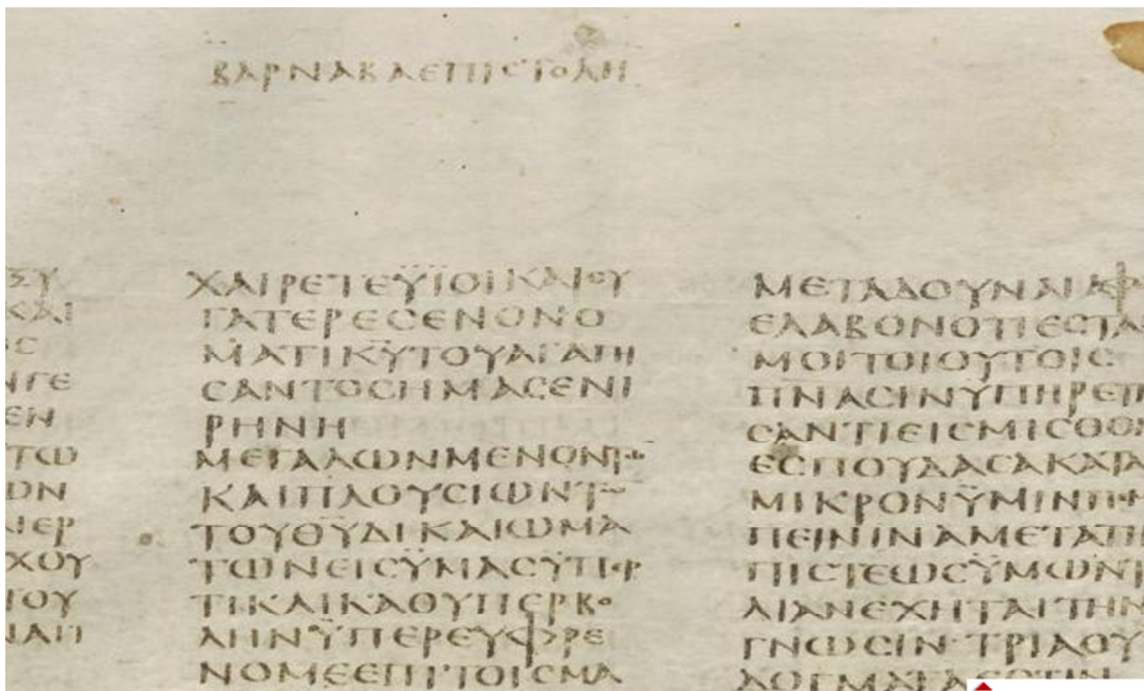 ΒΑΡΝΑΒΑΕΠΙϹΤΟΛΗ
ΚΑΙ
ΝΓΕ
ΕΝ
ΤΩ
ΩΝ
ΙΕΡ
ΧΟΥ
ΤΟΥ
ΝΑΠ
ΧΑΙΡΕΤΕΫΪΟΙΚΑΙΘΥ
ΓΑΤΕΡΕϹΕΝΟΝΟ
ΜΑΤΙΚΥΤΟΥΑΓΑΠΗ
ϹΑΝΤΟϹΗΜΑϹΕΝΙ
ΡΗΝΗ
ΜΕΓΑΛΩΝΜΕΝΟΝΤΩ
ΚΑΙΠΛΟΥϹΙΩΝΤΩ
ΤΟΥΘΥΔΙΚΑΙΩΜΑ
ΤΩΝΕΙϹΫΜΑϹΫΠΕΡ
ΤΙΚΑΙΚΑΘΥΠΕΡΒΟ
ΛΗΝΫΠΕΡΕΥΦΡΕ
ΝΟΜΕΕΠΙΤΟΙϹΜΑ
ΜΕΤΑΔΟΥΝΑΙΑΦ
ΕΛΑΒΟΝΟΤΙΕϹΤΑ
ΜΟΙΤΟΙΟΥΤΟΙϹ
ΠΝΑϹΙΝΫΠΗΡΕΤΗ
ϹΑΝΤΙΕΙϹΜΙϹΘΟΝ
ΕϹΠΟΥΔΑϹΑΚΑΤΑ
ΜΙΚΡΟΝΫΜΙΝΠΕΜ
ΠΕΙΝΙΝΑΜΕΤΑΤΗ
ΠΙϹΤΕΩϹΫΜΩΝΤ
ΛΙΑΝΕΧΗΤΑΙΤΗΝ
ΓΝΩϹΙΝ·ΤΡΙΑΟΥ
ΔΟΓΜΑΤΑΕϹΤΙΝ